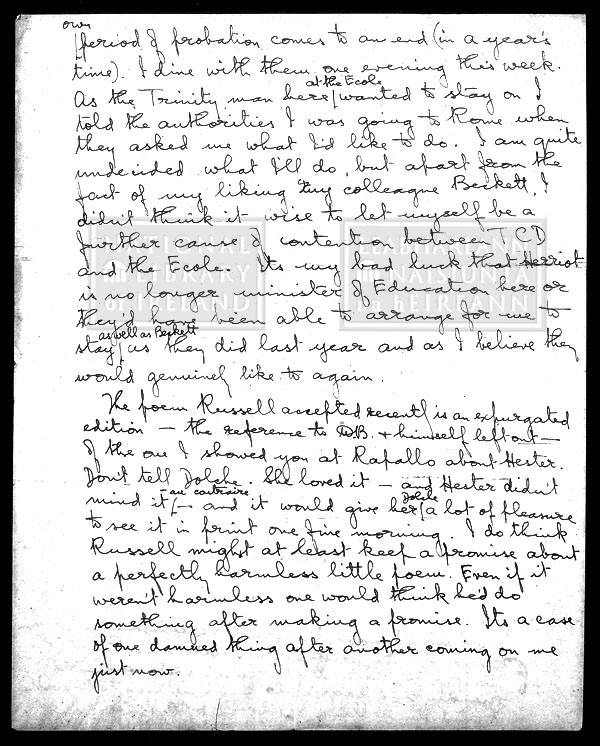 own
period of probation comes to an end (in a year's
time). I dine with them one evening this week.
at the Ecole
As the Trinity man here / wanted to stay on I
told the authorities I was going to Rome when
they asked me what I'd like to do. I am quite
undecided what I'll do, but apart from the
fact of my liking my colleague Beckett, I
didn't think it wise to let myself be a
further cause of contention between TCD
and the Ecole. Its my bad luck that Herriot
is no longer minister of Education here or
they'd have been able to arrange for me to
as well as Beckett
stay / as they did last year and as I believe they
would genuinely like to again.
The poem Russell accepted recently is an expurgated
edition — the reference to W.B. + himself left out —
of the one I showed you at Rapallo about Hester.
Dont tell Dolche. She loved it — and Hester didn't
au contraire
mind it / — and it would give her / a lot of pleasure
Dolche
to see it in print one fine morning. I do think
Russell might at least keep a promise about
a perfectly harmless little poem. Even if it
weren't harmless one would think he'd do
something after making a promise. Its a case
of one damned thing after another coming on me
just now.
NATIONAL
LIBRARY
OF IRELAND
LEABHARLANN
NÁISIÚNTA
na hÉIREANN